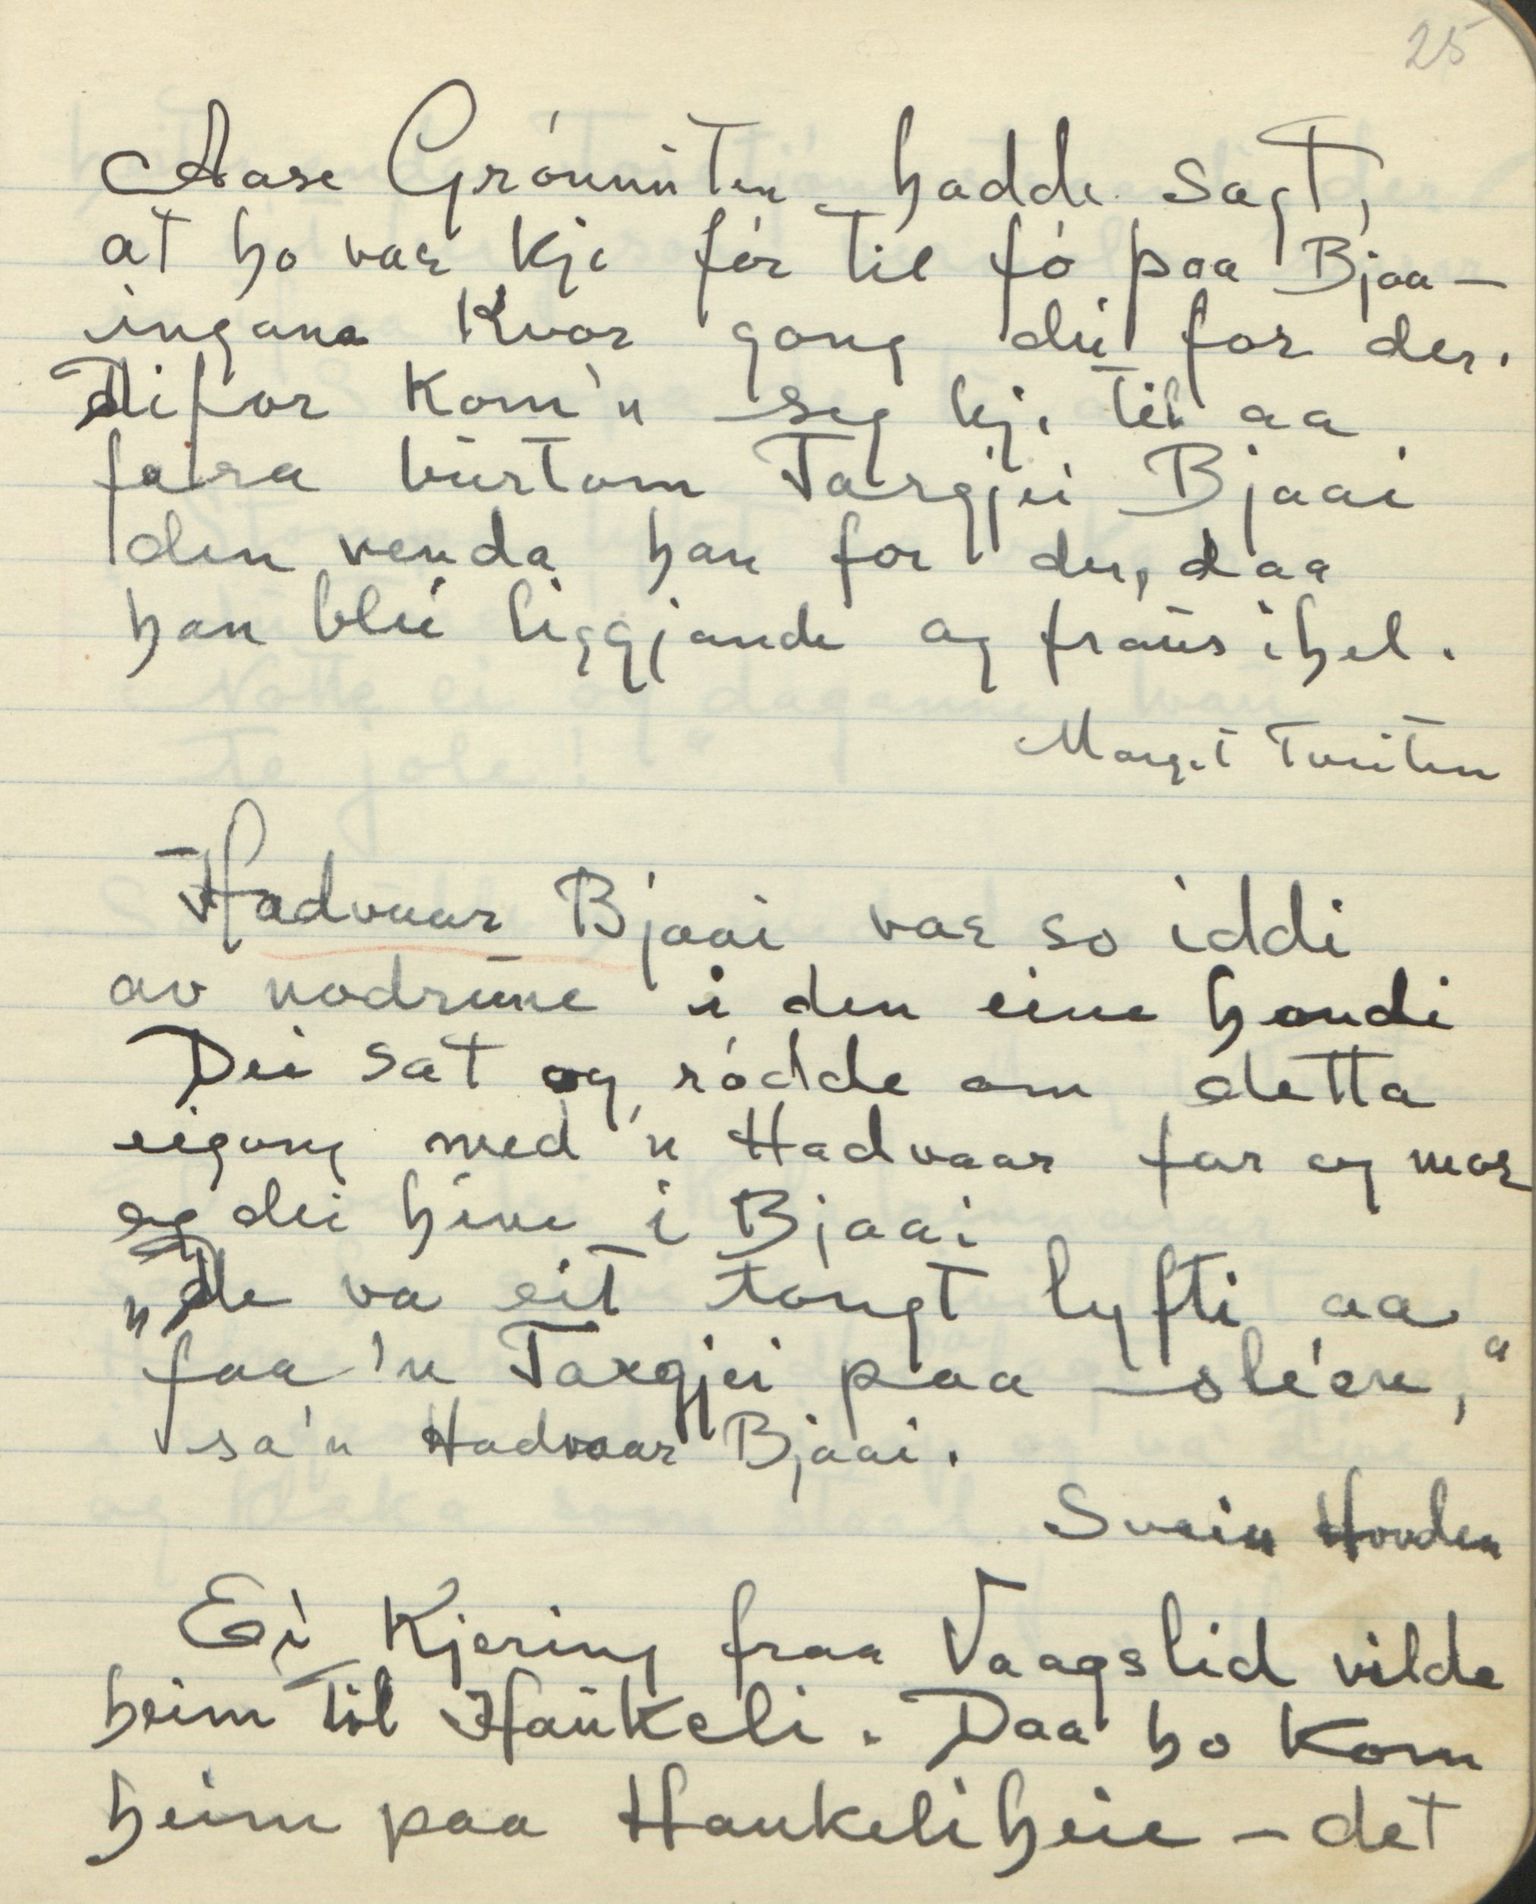 25
Aase Grónuuten hadde sagt,
at ho var kje fór til fó paa Bjaa-
ingane kvor gong dei for der.
Difor kom'n seg kje til aa
faira burtom Targjei Bjaai
den venda han for der, daa
han blei liggjande og fraus ihel.
Margit Tveiten
Hadvaar Bjaai var so iddi
av nodrune i den eine hondi
Dei sat og ródde om detta
eigong med'n Hadvaar far og mor
og dei hine i Bjaai
"De va eit tongt lyfti aa
faa'n Targjei paa sléen,"
sa'n Hadvaar Bjaai.
Svein Hovden
Ei Kjering fraa Vaagslid vilde
heim til Haukeli. Daa ho kom
heim paa Haukeliheie - det